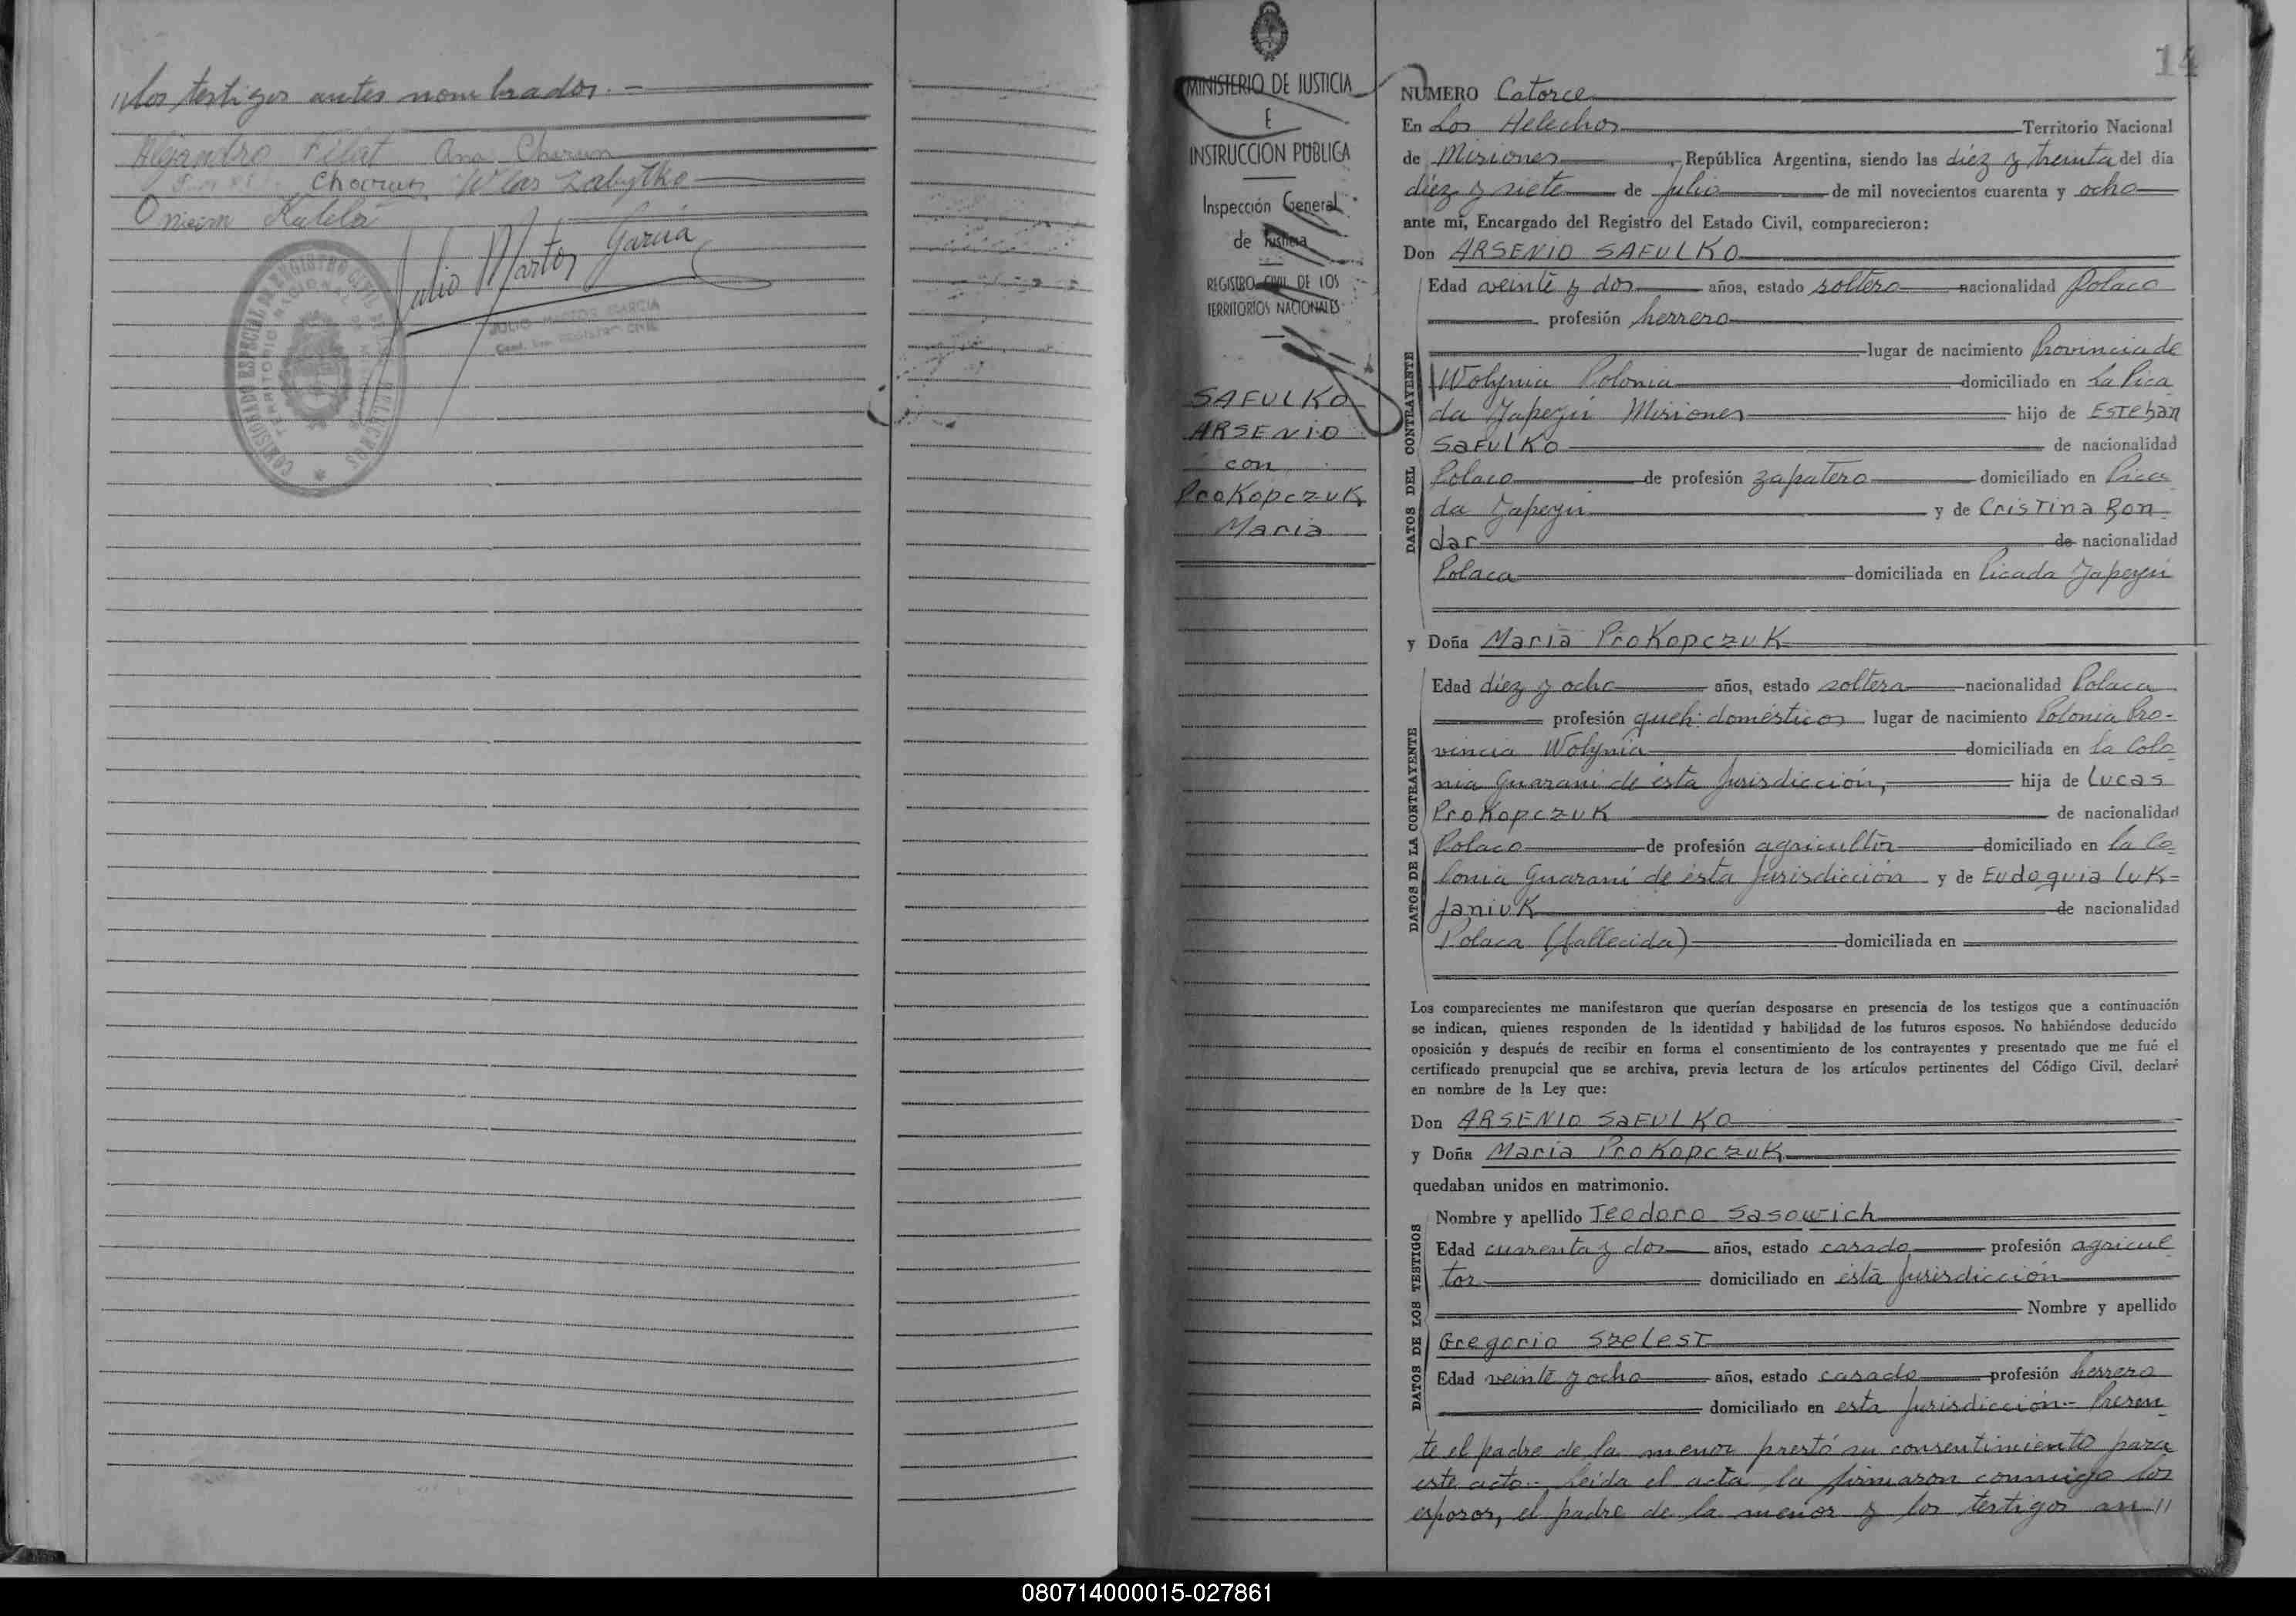 "los testigos antes nombrados. -
Alejandro Pilat Ana Cherun
Chocrun Wlas Zabytko
Julio Martos Garcia
JULIO MARTOS GARCIA
COMISIONADO ESPECIAL DE REGISTRO CIVIL
TERRITORIO NACIONAL
14
MINISTERIO DE JUSTICIA
E
INSTRUCCION PUBLICA
Inspección General
de Justicia
REGISTRO CIVIL DE LOS
TERRITORIOS NACIONALES
SAFULKO
ARSENIO
con
ProKopczuK
Maria
NUMERO Catorce
En Los Helechos Territorio Nacional
de Misiones, República Argentina, siendo las diéz y treinta del día
diéz y siete de julio de mil novecientos cuarenta y ocho
ante mí, Encargado del Registro del Estado Civil, comparecieron:
Don ARSENIO SAFULKO
DATOS DEL CONTRAYENTE
Edad veinte y dos años, estado soltero nacionalidad Polaco
profesión herrero
lugar de nacimiento Provincia de
Wolynia Polonia domiciliado en La Pica
da Yapeyú Misiones hijo de Esteban
SaFulKo de nacionalidad
Polaco de profesión zapatero domiciliado en Pica
da Yapeyú y de Cristina Bon
dar de nacionalidad
Polaca domiciliada en Picada Yapeyú
y Doña Maria ProKopczuK
DATOS DE LA CONTRAYENTE
Edad diéz y ocho años, estado soltera nacionalidad Polaca
profesión queh. domésticos lugar de nacimiento Polonia Pro-
vincia Wolynia domiciliada en la Colo
nia Guaraní de ésta Jurisdicción, hija de Lucas
ProKopczuK de nacionalidad
Polaco de profesión agricultor domiciliado en la Co-
lonia Guaraní de ésta Jurisdicción y de Eudoquia LuK=
JaniuK de nacionalidad
Polaca (fallecida) domiciliada en
Los comparecientes me manifestaron que querían desposarse en presencia de los testigos que a continuación
se indican, quienes responden de la identidad y habilidad de los futuros esposos. No habiéndose deducido
oposición y después de recibir en forma el consentimiento de los contrayentes y presentado que me fué el
certificado prenupcial que se archiva, previa lectura de los artículos pertinentes del Código Civil, declaré
en nombre de la Ley que:
Don ARSENIO SaFULKO
y Doña Maria ProKopczuK
quedaban unidos en matrimonio.
DATOS DE LOS TESTIGOS
Nombre y apellido Teodoro Sasowich
Edad cuarenta y dos años, estado casado profesión agricul
tor domiciliado en ésta Jurisdicción
Nombre y apellido
Gregorio Szelest
Edad veinte y ocho años, estado casado profesión herrero
domiciliado en esta Jurisdicción.- Presen
te el padre de la menor prestó su consentimiento para
este acto.- Leída el acta la firmaron conmigo los
esposos, el padre de la menor y los testigos an"
080714000015-027861